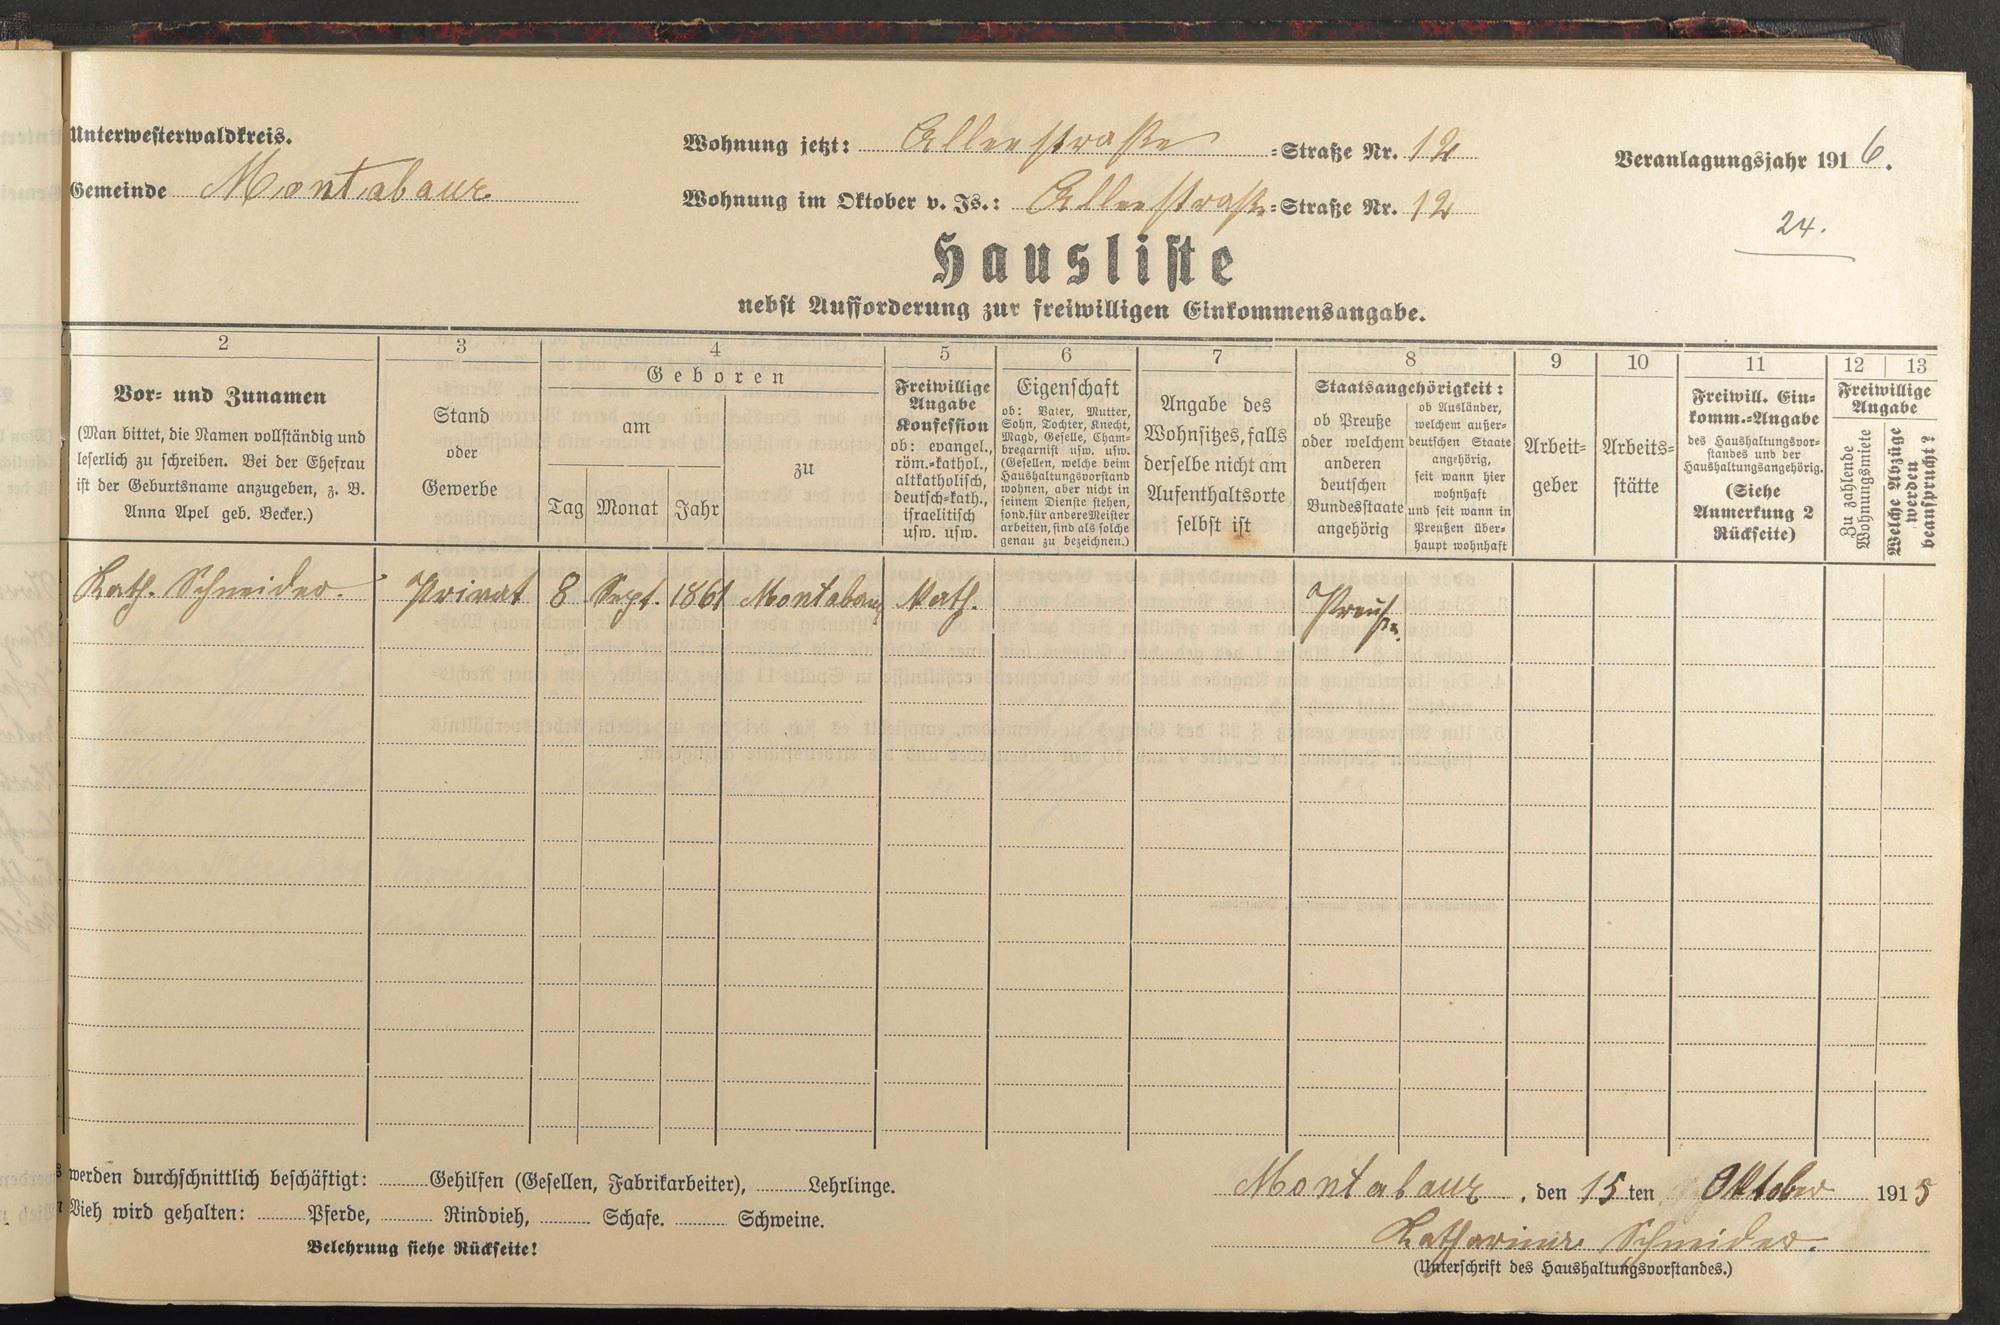 Unterwesterwaldkreis.
Gemeinde Montabaur
Wohnung jetzt: Alleestraße =Straße Nr. 12
Wohnung im Oktober v. Js.: Alleestraße =Straße Nr. 12
Veranlagungsjahr 1916.
24.
Hausliste
nebst Aufforderung zur freiwilligen Einkommensangabe.
2
Vor- und Zunamen
(Man bittet, die Namen vollständig und
leserlich zu schreiben. Bei der Ehefrau
ist der Geburtsname anzugeben, z. B.
Anna Apel geb. Becker.)
3
Stand
oder
Gewerbe
4
Geboren
am
zu
Tag Monat Jahr
5
Freiwillige
Angabe
Konfession
ob: evangel.,
röm.-kathol.,
altkatholisch,
deutsch-kath.,
israelitisch
usw. usw.
6
Eigenschaft
ob: Vater, Mutter,
Sohn, Tochter, Knecht,
Magd, Geselle, Cham-
bregarnist usw. usw.
(Gesellen, welche beim
Haushaltungsvorstand
wohnen, aber nicht in
seinem Dienste stehen,
sond. für andere Meister
arbeiten, sind als solche
genau zu bezeichnen.)
7
Angabe des
Wohnsitzes, falls
derselbe nicht am
Aufenthaltsorte
selbst ist
8
Staatsangehörigkeit:
ob Preuße
oder welchem
anderen
deutschen
Bundesstaate
angehörig
ob Ausländer,
welchem außer-
deutschen Staate
angehörig,
seit wann hier
wohnhaft
und seit wann in
Preußen über-
haupt wohnhaft
9
Arbeit-
geber
10
Arbeits-
stätte
11
Freiwill. Ein-
komm.-Angabe
des Haushaltungsvor-
standes und der
Haushaltungsangehörig.
(Siehe
Anmerkung 2
Rückseite)
12 13
Freiwillige
Angabe
Zu zahlende
Wohnungsmiete
Welche Abzüge
werden
beansprucht?
Kath. Schneider. Privat 8 Sept. 1861 Montabaur Kath. Preußen.
werden durchschnittlich beschäftigt: Gehilfen (Gesellen, Fabrikarbeiter), Lehrlinge.
Vieh wird gehalten: Pferde, Rindvieh, Schafe. Schweine.
Belehrung siehe Rückseite!
Montabaur, den 15ten Oktober 1915
Katharina Schneider.
(Unterschrift des Haushaltungsvorstandes.)